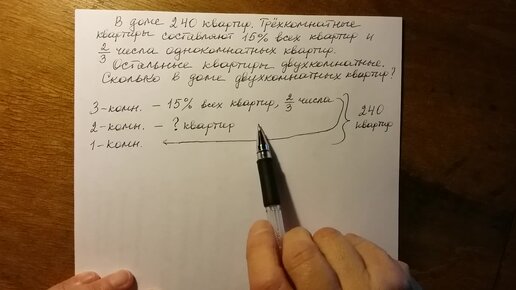 В доме 240 квартир. Трёхкомнатные
квартиры составляют 15% всех квартир и
2/3 числа однокомнатных квартир.
Остальные квартиры двухкомнатные.
Сколько в доме двухкомнатных квартир?
3-комн. – 15% всех квартир, 2/3 числа
2-комн. – ? квартир
1-комн.
240
квартир